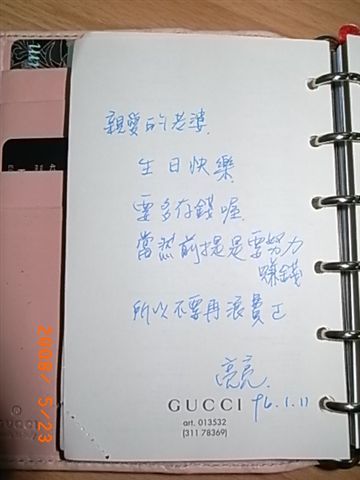 親愛的老婆
生日快樂
要多存錢喔
當然前提是要努力
賺錢
所以不要再浪費
亮亮
96.1.11
GUCCI
art. 013532
(311 78369)
2008/5/23